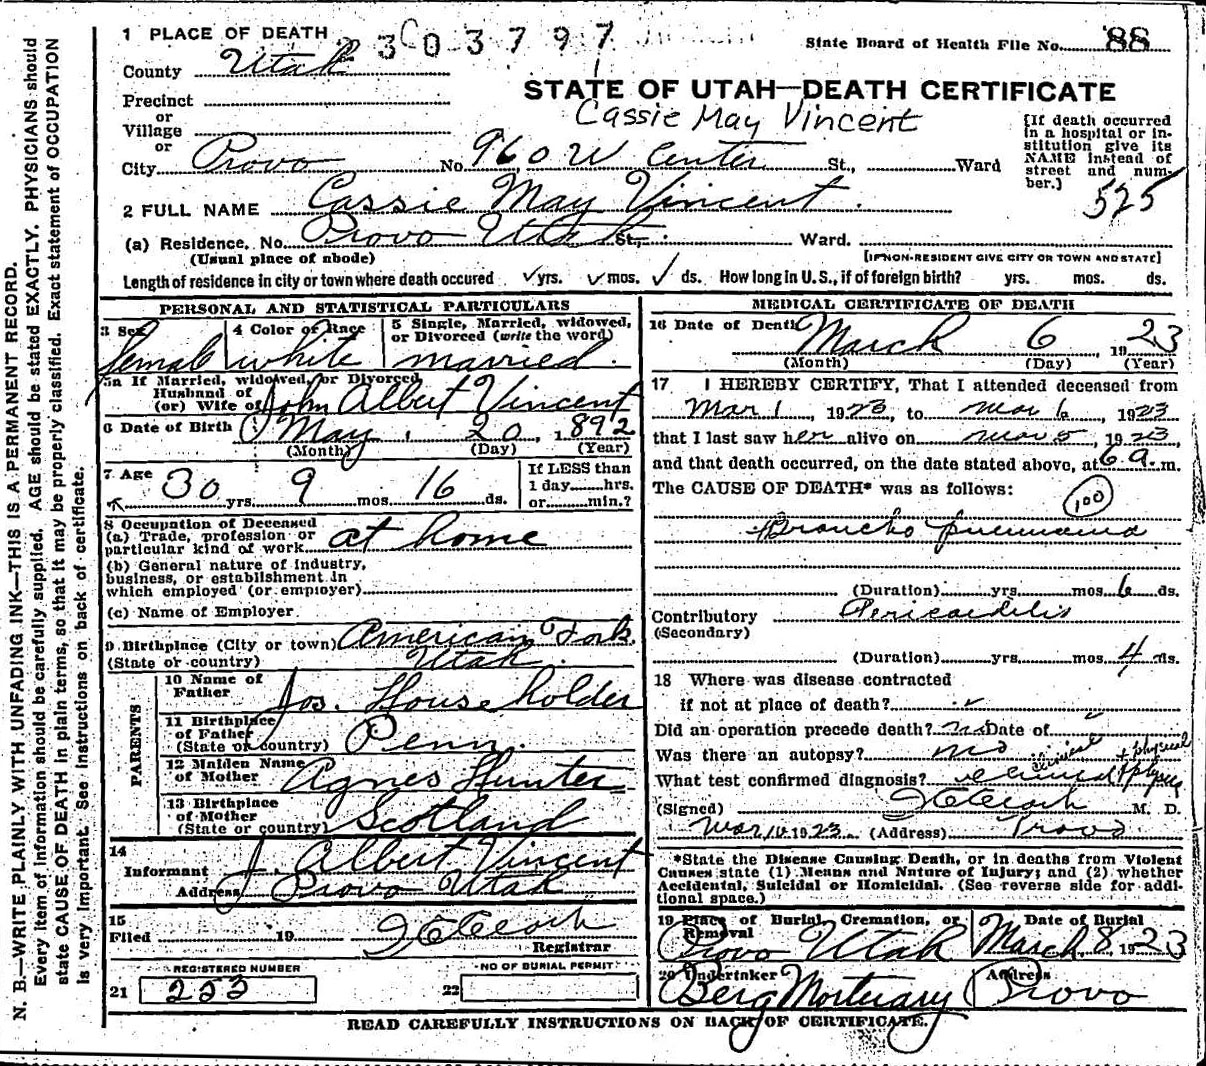 N. B.—WRITE PLAINLY WITH UNFADING INK—THIS IS A PERMANENT RECORD.
Every item of information should be carefully supplied. AGE should be stated EXACTLY. PHYSICIANS should
state CAUSE OF DEATH in plain terms, so that it may be properly classified. Exact statement of OCCUPATION
is very important. See instructions on back of certificate.
1 PLACE OF DEATH
2303797
State Board of Health File No. 88
County Utah
STATE OF UTAH—DEATH CERTIFICATE
Precinct
Cassie May Vincent
or
Village
or
[If death occurred
in a hospital or in-
stitution give its
NAME instead of
street and num-
ber.]
City Provo No. 960 W Center St., Ward
525
2 FULL NAME Cassie May Vincent.
(a) Residence. No. Provo Utah St., Ward.
(Usual place of abode)
[IF NON-RESIDENT GIVE CITY OR TOWN AND STATE]
Length of residence in city or town where death occured ✓ yrs. ✓ mos. ✓ ds. How long in U.S., if of foreign birth? yrs. mos. ds.
PERSONAL AND STATISTICAL PARTICULARS
3 Sex
female
4 Color or Race
white
5 Single, Married, widowed,
or Divorced (write the word)
married.
5a If Married, widowed, or Divorced
Husband of
(or) Wife of John Albert Vincent
6 Date of Birth May 20, 1892
(Month) (Day) (Year)
7 Age 30 yrs. 9 mos. 16 ds.
If LESS than
1 day......hrs.
or......min.?
8 Occupation of Deceased
(a) Trade, profession or
particular kind of work at home
(b) General nature of industry,
business, or establishment in
which employed (or employer)
(c) Name of Employer
9 Birthplace (City or town) American Fork
(State or country) Utah.
PARENTS
10 Name of
Father Jos. Householder
11 Birthplace
of Father
(State or country) Penn.
12 Maiden Name
of Mother Agnes Hunter
13 Birthplace
of Mother
(State or country) Scotland
14
Informant J. Albert Vincent
Address Provo Utah
15
Filed 19
Registrar
REGISTERED NUMBER
21 253
NO OF BURIAL PERMIT
22
MEDICAL CERTIFICATE OF DEATH
16 Date of Death March 6 1923
(Month) (Day) (Year)
17 I HEREBY CERTIFY, That I attended deceased from
Mar 1, 1923, to Mar 6, 1923
that I last saw her alive on Mar 5, 1923,
and that death occurred, on the date stated above, at 6 a.m.
The CAUSE OF DEATH* was as follows:
100
Broncho pneumonia
(Duration) yrs. mos. 6 ds.
Contributory Pericarditis
(Secondary)
(Duration) yrs. mos. 4 ds.
18 Where was disease contracted
if not at place of death? ✓
Did an operation precede death? no Date of ✓
Was there an autopsy? no
clinical + physical
What test confirmed diagnosis? clinical + physical
(Signed) M. D.
Mar 10 1923 (Address) Provo
*State the Disease Causing Death, or in deaths from Violent
Causes state (1) Means and Nature of Injury; and (2) whether
Accidental, Suicidal or Homicidal. (See reverse side for addi-
tional space.)
19 Place of Burial, Cremation, or
Removal
Provo Utah
Date of Burial
March 8, 1923
20 Undertaker
Berg Mortuary
Address
Provo
READ CAREFULLY INSTRUCTIONS ON BACK OF CERTIFICATE.